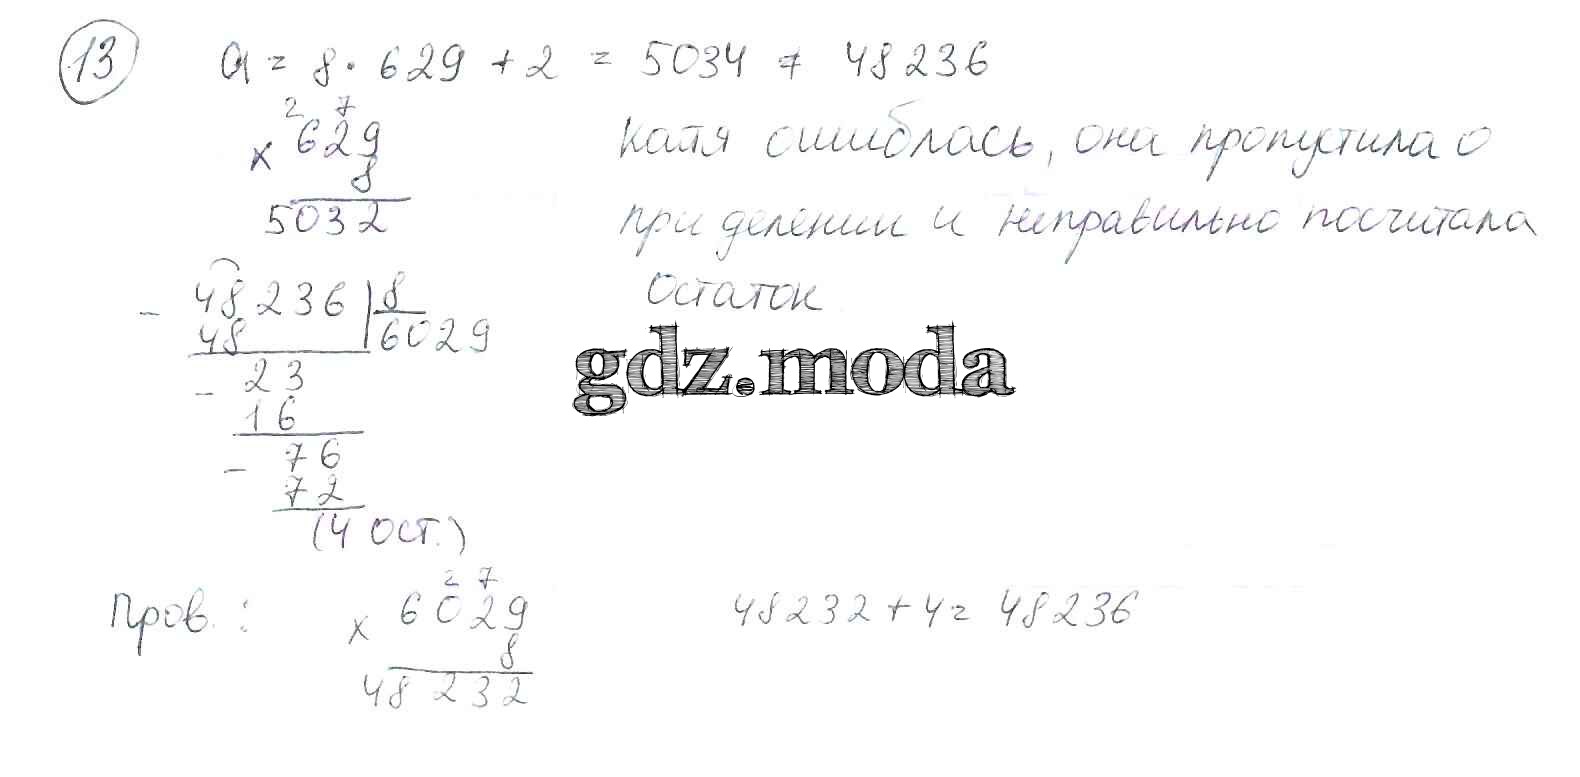 13 a = 8 · 629 + 2 = 5034 ≠ 48236
2 7
× 629
8
5032
Катя ошиблась, она пропустила 0
при делении и неправильно посчитала
остаток
- 48236 | 8
48 6029
- 23
16
- 76
72
(4 ост.)
gdz.moda
Пров. :
2 7
× 6029
8
48232
48232 + 4 = 48236